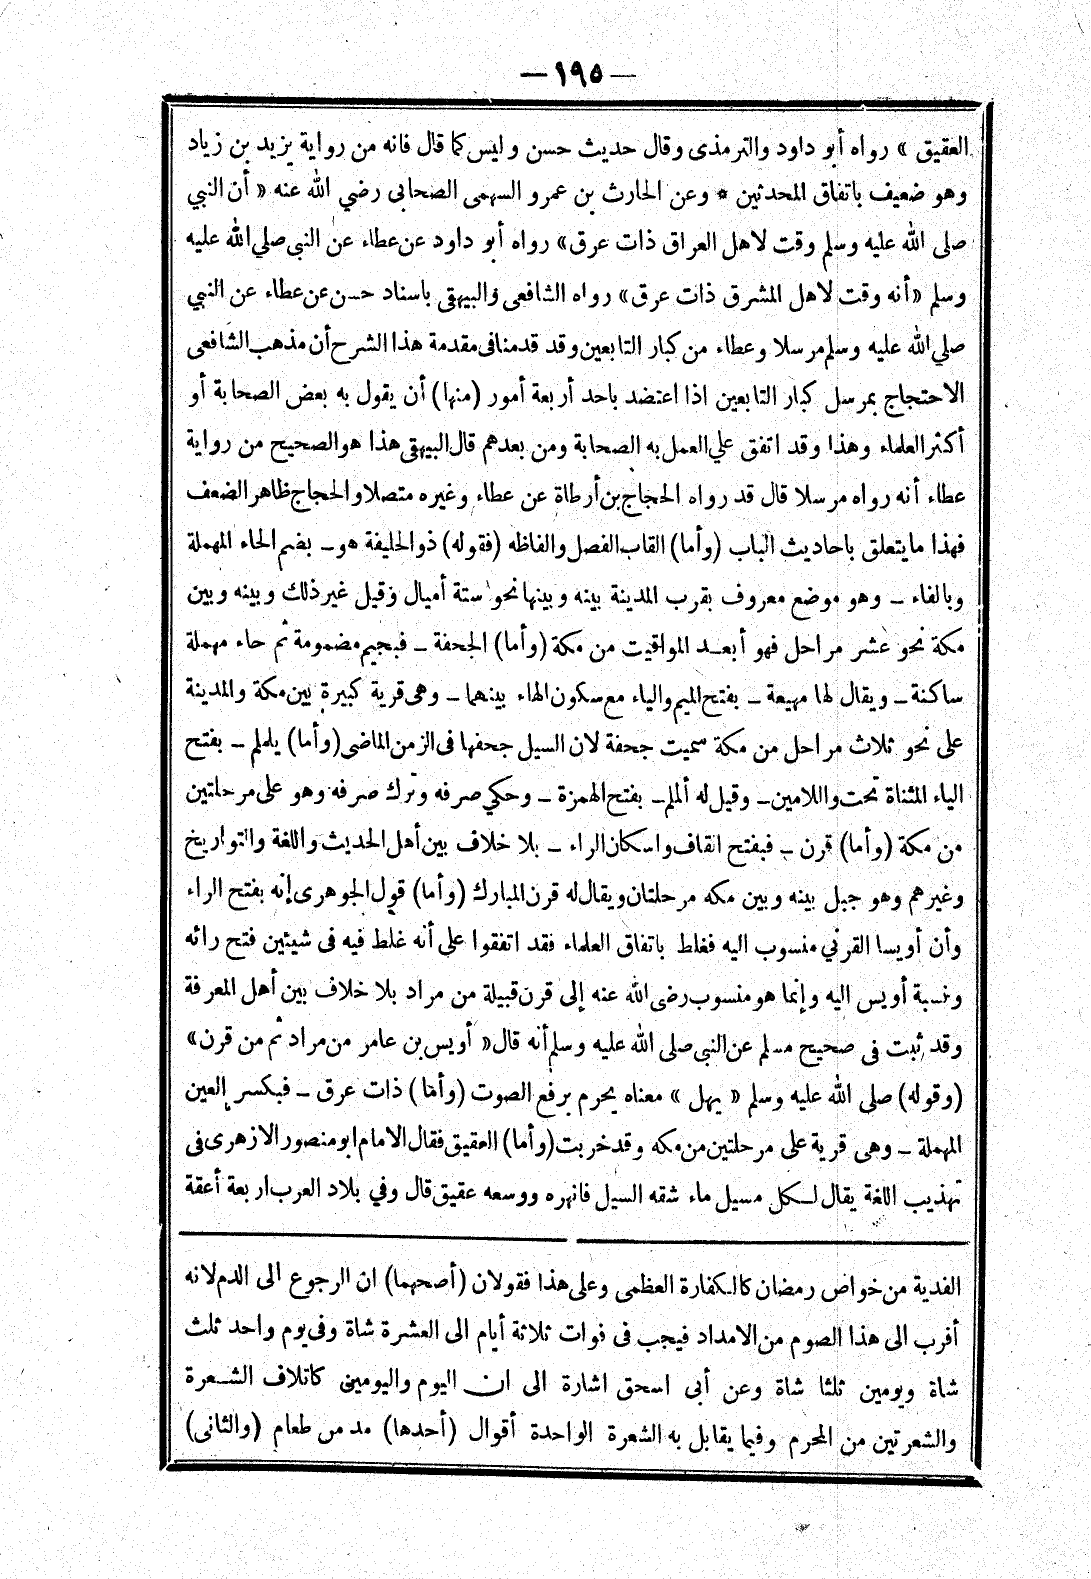 — ١٩٥ —
العقيق » رواه أبو داود والترمذى وقال حديث حسن وليس كما قال فانه من رواية يزيد بن زياد
وهو ضعيف باتفاق المحدثين * وعن الحارث بن عمرو السهمى الصحابى رضي الله عنه « أن النبي
صلى الله عليه وسلم وقت لاهل العراق ذات عرق » رواه أبو داود عن عطاء عن النبى صلي الله عليه
وسلم « أنه وقت لاهل المشرق ذات عرق » رواه الشافعى والبيهقى باسناد حسن عن عطاء عن النبي
صلي الله عليه وسلم مرسلا وعطاء من كبار التابعين وقد قدمنا فى مقدمة هذا الشرح أن مذهب الشافعى
الاحتجاج بمرسل كبار التابعين اذا اعتضد باحد أربعة أمور (منها) أن يقول به بعض الصحابة أو
أكثر العلماء وهذا وقد اتفق علي العمل به الصحابة ومن بعدهم قال البيهقى هذا هو الصحيح من رواية
عطاء أنه رواه مرسلا قال قد رواه الحجاج بن أرطاة عن عطاء وغيره متصلا والحجاج ظاهر الضعف
فهذا ما يتعلق باحاديث الباب (وأما) القاب الفصل والفاظه (فقوله) ذو الحليفة هو ــ بضم الحاء المهملة
وبالفاء ــ وهو موضع معروف بقرب المدينة بينه وبينها نحو ستة أميال وقيل غير ذلك وبينه وبين
مكة نحو عشر مراحل فهو أبعد المواقيت من مكة (وأما) الجحفة ــ فبجيم مضمومة ثم حاء مهملة
ساكنة ــ ويقال لها مهيعة ــ بفتح الميم والياء مع سكون الهاء بينهما ــ وهى قرية كبيرة بين مكة والمدينة
على نحو ثلاث مراحل من مكة سميت جحفة لان السيل جحفها فى الزمن الماضى (وأما) يلملم ــ بفتح
الياء المثناة تحت واللامين ــ وقيل له ألملم ــ بفتح الهمزة ــ وحكي صرفه وترك صرفه وهو على مرحلتين
من مكة (وأما) قرن ــ فبفتح القاف واسكان الراء ــ بلا خلاف بين أهل الحديث واللغة والتواريخ
وغيرهم وهو جبل بينه وبين مكه مرحلتان ويقال له قرن المبارك (وأما) قول الجوهرى إنه بفتح الراء
وأن أويسا القرني منسوب اليه فغلط باتفاق العلماء فقد اتفقوا على أنه غلط فيه فى شيئين فتح رائه
ونسبة أويس اليه وإنما هو منسوب رضى الله عنه إلى قرن قبيلة من مراد بلا خلاف بين أهل المعرفة
وقد ثبت فى صحيح مسلم عن النبى صلى الله عليه وسلم أنه قال « أويس بن عامر من مراد ثم من قرن »
(وقوله) صلى الله عليه وسلم « يهل » معناه يحرم برفع الصوت (وأما) ذات عرق ــ فبكسر العين
المهملة ــ وهى قرية على مرحلتين من مكه وقد خربت (وأما) العقيق فقال الامام ابو منصور الازهرى فى
تهذيب اللغة يقال لكل مسيل ماء شقه السيل فانهره ووسعه عقيق قال وفي بلاد العرب اربعة أعقة
الفدية من خواص رمضان كالكفارة العظمى وعلى هذا فقولان (أصحهما) ان الرجوع الى الدم لانه
أقرب الى هذا الصوم من الامداد فيجب فى فوات ثلاثة أيام الى العشرة شاة وفى يوم واحد ثلث
شاة ويومين ثلثا شاة وعن أبى اسحق اشارة الى ان اليوم واليومين كاتلاف الشعرة
والشعرتين من المحرم وفيما يقابل به الشعرة الواحدة أقوال (أحدها) مد من طعام (والثانى)